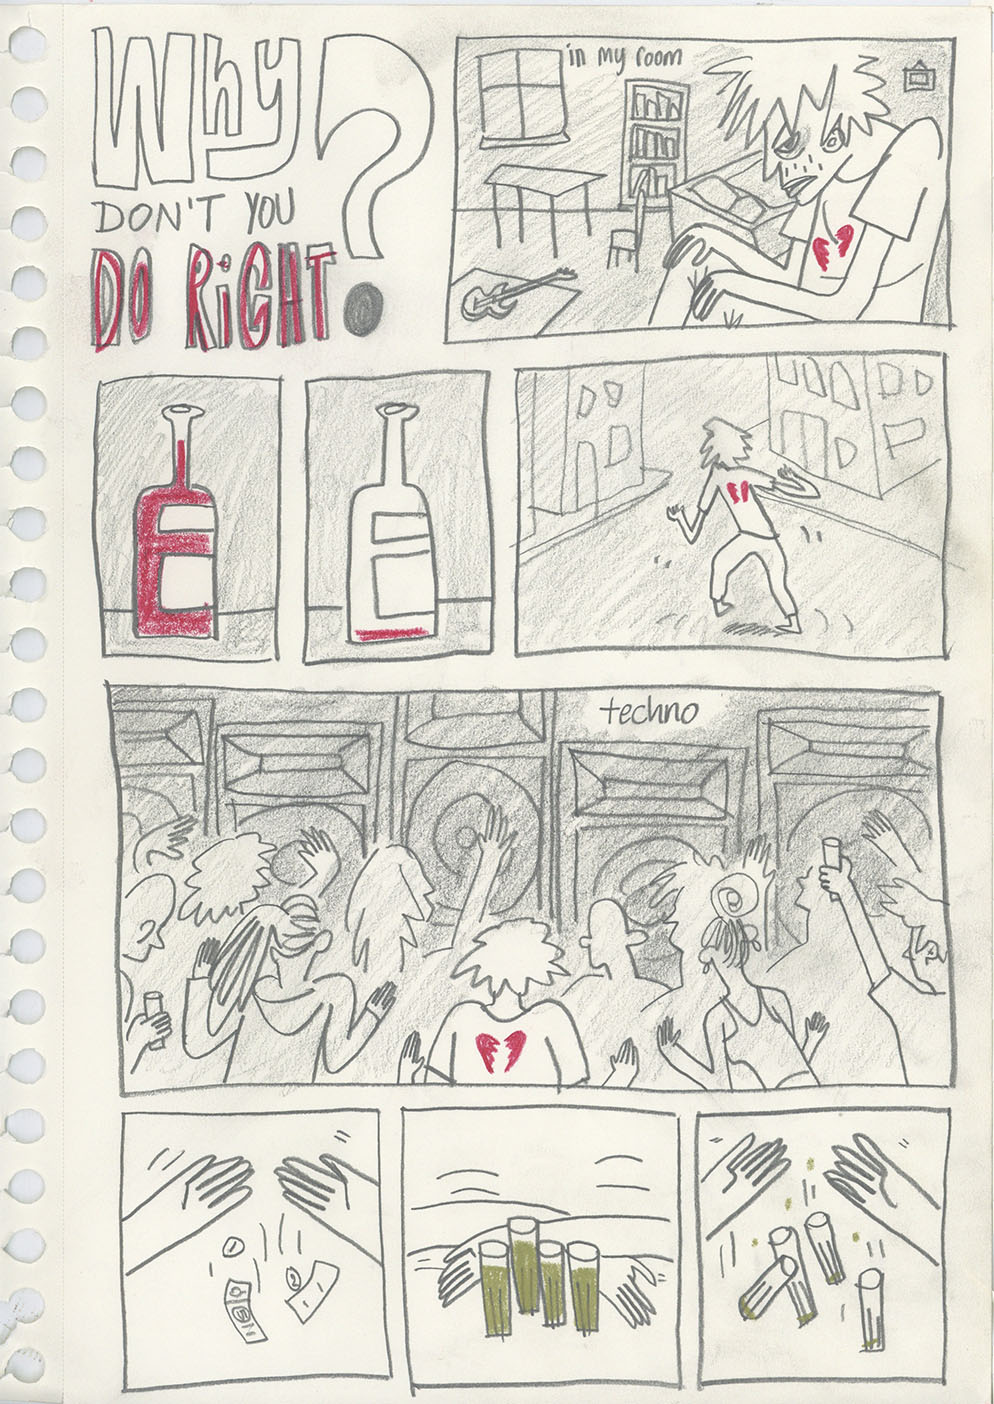 Why?
DON'T YOU
DO RiGHT
in my room
techno